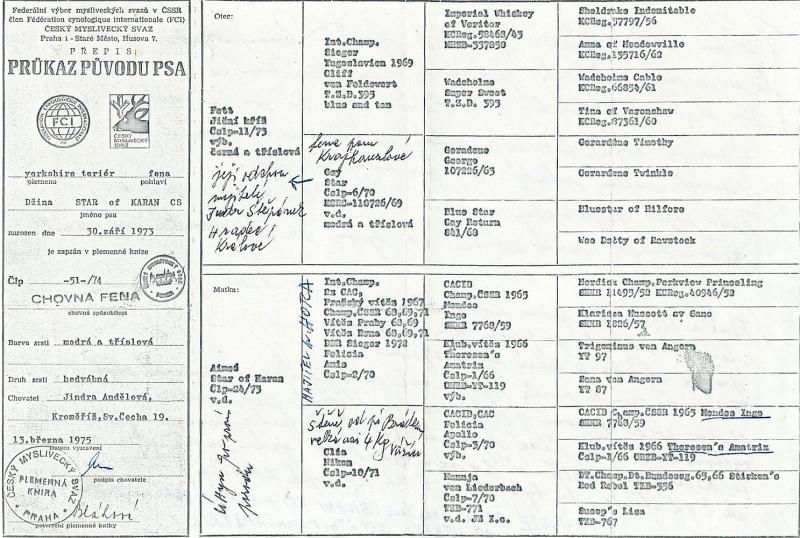 Federální výbor mysliveckých svazů v ČSSR
člen Fédération cynologique internationale (FCI)
ČESKÝ MYSLIVECKÝ SVAZ
Praha 1 - Staré Město, Husova 7.
PŘEPIS
PRŮKAZ PŮVODU PSA
FCI
ČESKÝ
MYSLIVECKÝ
SVAZ
yorkshire teriér fena
plemeno pohlaví
Džina STAR of KARAN CS
jméno psa
narozen dne 30.září 1973
je zapsán v plemenné knize
Člp -51-/74
CHOVNÁ FENA
chovná způsobilost
Barva srsti modrá a tříslová
Druh srsti hedvábná
Chovatel Jindra Andělová,
Kroměříž, Sv.Čecha 19.
13.března 1975
Datum vystavení
podpis chovatele
ČESKÝ MYSLIVECKÝ SVAZ
PLEMENNÁ
KNIHA
PRAHA
Bláhová
potvrzení plemenné knihy
Otec:
Fett
Jižní kříž
Cslp-11/73
výb.
černá a tříslová
její odchov
majitel
Hradec
Králové
Int.Champ.
Sieger
Yugoslavien 1969
Cliff
von Feldevert
T.Z.D.395
blue and tan
fena paní
Gay
Star
Cslp-6/70
KCRC-110726/69
v.d.
modrá a tříslová
Imperial Whiskey
of Veritor
KCReg.58468/43
NHSB-337850
Wadeholme
Super Sweet
T.Z.D. 395
Geradene
George
107226/63
Blue Star
Gay Return
841/68
Sheldrake Indomitable
KCReg.37797/56
Anna of Meadowville
KCReg.135716/62
Wadeholme Cable
KCReg.66854/61
Tina of Yaronshaw
KCReg.87361/60
Gerardene Timothy
Gerardene Twinkle
Bluestar of Hilfore
Wee Dotty of Ravstock
Matka:
Aimeé
Star of Karan
Člp-24/73
v.d.
MAJITEL HORA
Int.Champ.
Sx CAC,
Pražský vítěz 1967
Champ.ČSSR 68,69,71
Vítěz Prahy 68,69
Vítěz Brna 68,69,71
DDR Sieger 1972
Felicia
Amis
Cslp-2/70
velká asi 4 kg
Clia
Nikon
Cslp-10/71
v.d.
CACIB
Champ.ČSSR 1965
Mendes
Ingo
SHKR 7768/59
Klub.vítěz 1966
Theresen's
Amatrix
Cslp-1/66
ÖHZB-YT-119
výb.
CACID,CAC
Felicia
Apollo
Cslp-3/70
výb.
Nannja
von Liederbach
Cslp-7/70
TZB-771
v.d. JE I.c.
Nordisk Champ.Parkview Princeling
SHKR 11495/52 KCReg.40946/52
Klarissa Mussett av Sano
SHKR 1826/57
Trigeminus von Angern
YT 97
Sana von Angern
YT 87
CACID Champ.ČSSR 1965 Mendes Ingo
SHKR 7768/59
Klub.vítěz 1966 Theresen's Amatrix
Cslp-1/66 ÖHZB-YT-119
Dt.Champ.Dt.Bundessg.65,66 Stirkem's
Red Rebel TZB-356
Susop's Lisa
TZB-767